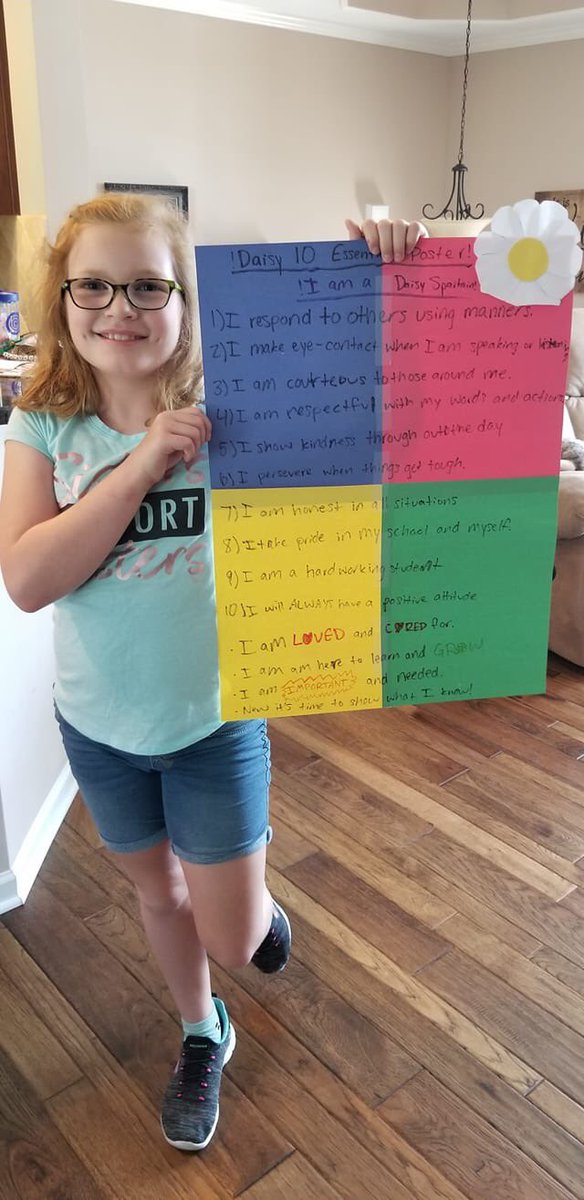 !Daisy 10 Essen Poster!
!I am a Daisy Spartan!
1) I respond to others using manners.
2) I make eye-contact when I am speaking or listening
3) I am courteous to those around me.
4) I am respectful with my words and actions
5) I show kindness through out the day
6) I persevere when things get tough.
7) I am honest in all situations
8) I take pride in my school and myself.
9) I am a hard working student
10) I will ALWAYS have a positive attitude
· I am LOVED and CARED for.
· I am am here to learn and GROW
· I am IMPORTANT and needed.
· Now it's time to show what I know!
ORT